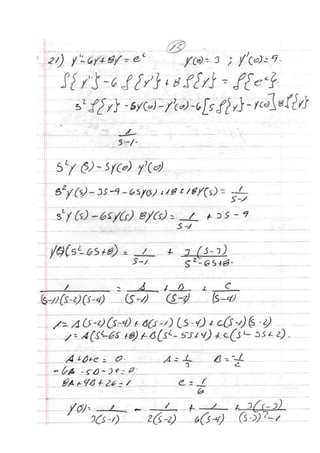 15
21) y''-6y+8y = eᵗ y(0)=3 ; y'(0)=9.
ʆ{y''}-6 ʆ{y'}+8 ʆ{y} = ʆ{eᵗ}.
s² ʆ{y} - sy(0)-y'(0)-6[s ʆ{y}-y(0)]8 ʆ{y}
1/(s-1).
s²y(s)-sy(0) y'(0)
s²y(s)-3s-9-6sy(s)+18+18y(s) = 1/(s-1)
s²y(s)-6sy(s) 8y(s) = 1/(s-1) + 3s-9
y(s)(s²-6s+8) = 1/(s-1) + 3(s-3)/(s²-6s+8.
1/((s-1)(s-2)(s-4)) = A/(s-1) + B/(s-2) + C/(s-4)
1=A(s-2)(s-4)+B(s-1)(s-4)+C(s-1)(s-2)
1=A(s²-6s+8)+B(s²-5s+4)+C(s²-3s+2).
A+B+C=0. A=1/3 B=-1/2
-6A-5B-3C=0.
8A+4B+2C=1 C=1/6
y(s)= 1/(3(s-1)) - 1/(2(s-2)) + 1/(6(s-4)) + 3(s-3)/((s-3)²-1